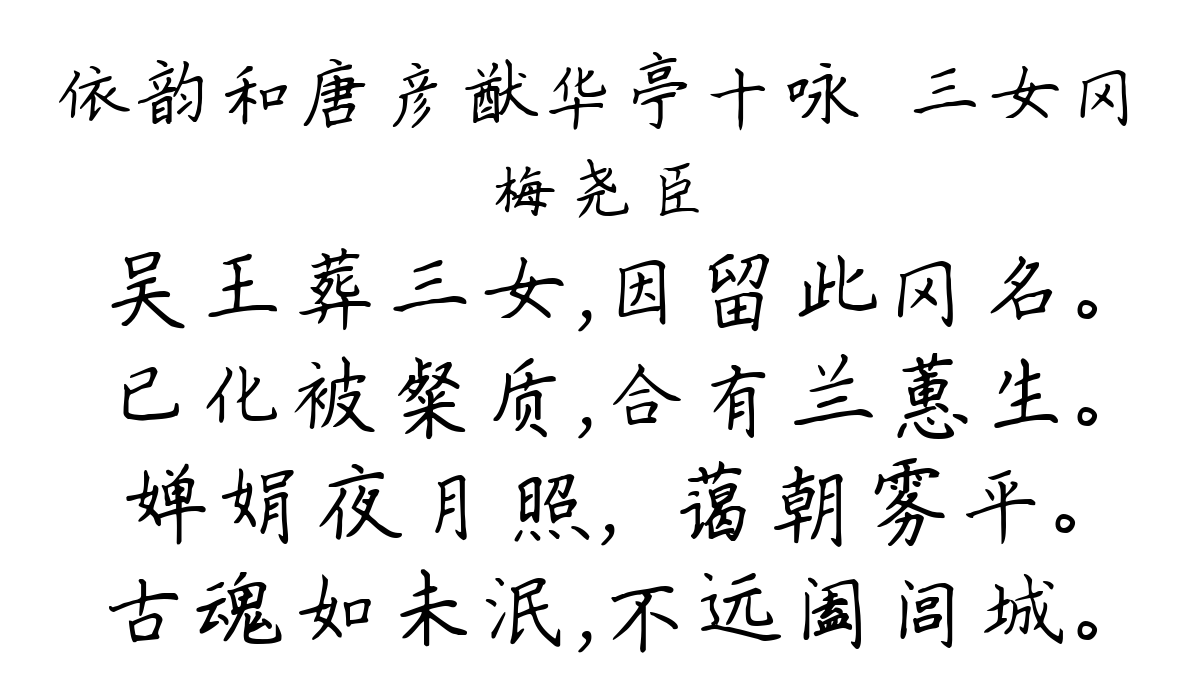 依韵和唐彦猷华亭十咏 三女冈
梅尧臣
吴王葬三女,因留此冈名。
已化被粲质,合有兰蕙生。
婵娟夜月照, 蔼朝雾平。
古魂如未泯,不远阖闾城。